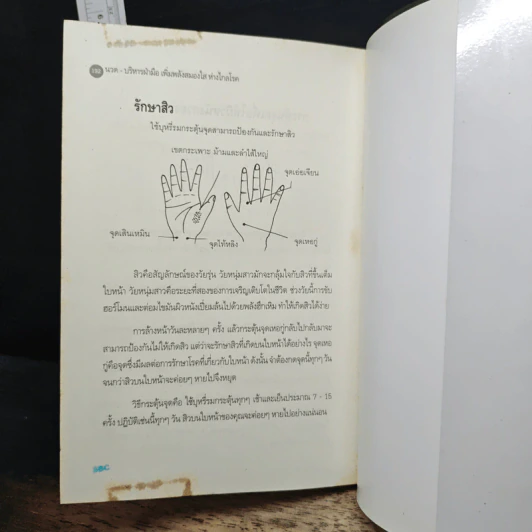 นวด - บริหารฝ่ามือ เพิ่มพลังสมองใส ห่างไกลโรค
รักษาสิว
ใช้บุหรี่รมกระตุ้นจุดสามารถป้องกันและรักษาสิว
เขตกระเพาะ ม้ามและลำไส้ใหญ่
จุดเอ่อเจียน
จุดเสินเหมิน
จุดไท้หลิง
จุดเหอกู่
สิวคือสัญลักษณ์ของวัยรุ่น วัยหนุ่มสาวมักจะกลุ้มใจกับสิวที่ขึ้นเต็ม
ใบหน้า วัยหนุ่มสาวคือระยะที่สองของการเจริญเติบโตในชีวิต ช่วงวัยนี้การขับ
ฮอร์โมนและต่อมไขมันผิวหนังเปี่ยมล้นไปด้วยพลังฮึกเหิม ทำให้เกิดสิวได้ง่าย
การล้างหน้าวันละหลายๆ ครั้ง แล้วกระตุ้นจุดเหอกู่กลับไปกลับมาจะ
สามารถป้องกันไม่ให้เกิดสิว แต่ว่าจะรักษาสิวที่เกิดบนใบหน้าได้อย่างไร จุดเหอ
กู่คือจุดซึ่งมีผลต่อการรักษาโรคที่เกี่ยวกับใบหน้า ดังนั้น จำต้องกดจุดนี้ทุกๆ วัน
จนกว่าสิวบนใบหน้าจะค่อยๆ หายไปจึงหยุด
วิธีกระตุ้นจุดคือ ใช้บุหรี่รมกระตุ้นทุกๆ เช้าและเย็นประมาณ 7 - 15
ครั้ง ปฏิบัติเช่นนี้ทุกๆ วัน สิวบนใบหน้าของคุณจะค่อยๆ หายไปอย่างแน่นอน